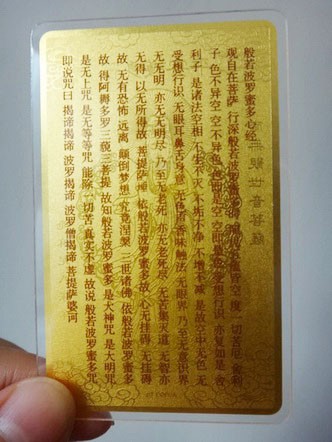 般若波罗蜜多心经
观自在菩萨 行深般若波罗蜜多时 照见五蕴皆空 度一切苦厄 舍利
子 色不异空 空不异色 色即是空 空即是色 受想行识 亦复如是 舍
利子 是诸法空相 不生不灭 不垢不净 不增不减 是故空中无色 无
受想行识 无眼耳鼻舌身意 无色声香味触法 无眼界 乃至无意识界
无无明 亦无无明尽 乃至无老死 亦无老死尽 无苦集灭道 无智亦
无得 以无所得故 菩提萨埵 依般若波罗蜜多故 心无挂碍 无挂碍
故 无有恐怖 远离 颠倒梦想 究竟涅槃 三世诸佛 依般若波罗蜜多
故 得阿耨多罗 三藐三菩提 故知般若波罗蜜多 是大神咒 是大明咒
是无上咒 是无等等咒 能除一切苦 真实不虚 故说般若波罗蜜多咒
即说咒曰 揭谛揭谛 波罗揭谛 波罗僧揭谛 菩提萨婆诃